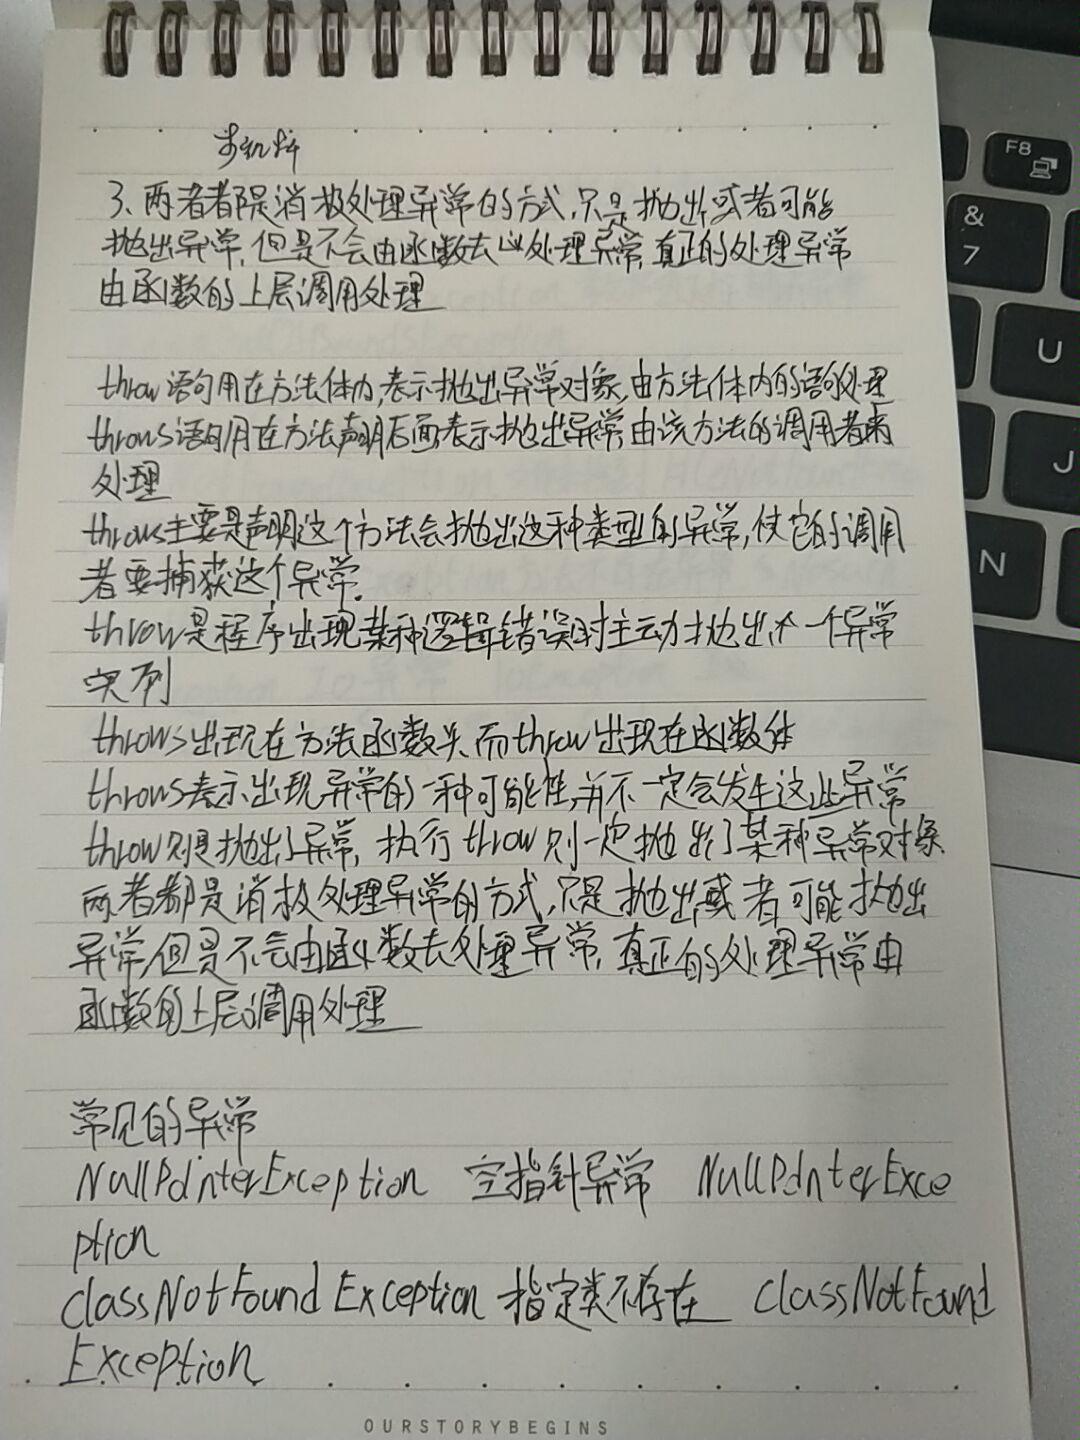 3、两者都是消极处理异常的方式,只是抛出或者可能
抛出异常,但是不会由函数去处理异常,真正的处理异常
由函数的上层调用处理
throw语句用在方法体内,表示抛出异常对象,由方法体内的语句处理
throws语句用在方法声明后面表示抛出异常,由该方法的调用者来
处理
throws主要是声明这个方法会抛出这种类型的异常,使它的调用
者要捕获这个异常.
throw是程序出现某种逻辑错误时主动抛出一个异常
实列
throws出现在方法函数头、而throw出现在函数体
throws表示出现异常的一种可能性,并不一定会发生这些异常
throw则是抛出了异常,执行throw则一定抛出了某种异常对象
两者都是消极处理异常的方式,只是抛出或者可能抛出
异常,但是不会由函数去处理异常,真正的处理异常由
函数的上层调用处理
常见的异常
NullPointerException 空指针异常 NullPointerExce
ption
ClassNotFoundException 指定类不存在 ClassNotFound
Exception
OURSTORYBEGINS
F8
&
7
U
J
N